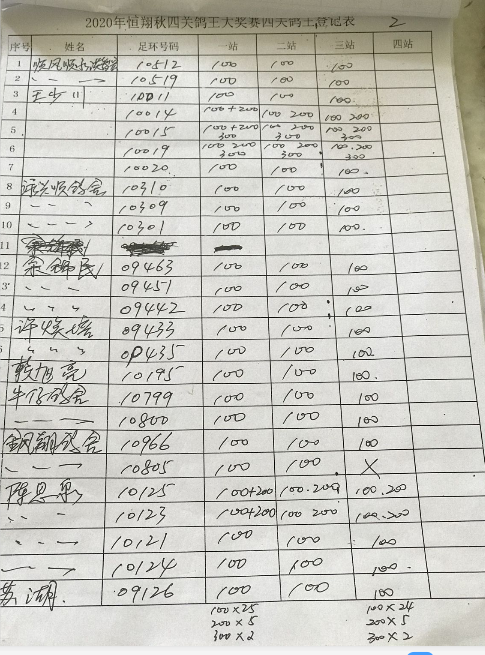 2020年恒翔秋四关鸽王大奖赛四关鸽王登记表 2
序号 姓名 足环号码 一站 二站 三站 四站
1 顺风顺水 10512 100 100 100
2 〃 〃 〃 10519 100 100 100
3 王少川 10011 100 100 100
4 10014 100+200 100 200 100 200
5 10015 100+200 300 100 200 300 100 200 300
6 10019 100 200 300 100 200 300 100.200 300
7 10020 100 100 100
8 兴顺鸽舍 10310 100 100 100
9 〃 〃 〃 10309 100 100 100
10 〃 〃 〃 10301 100 100 100
11
12 余锦民 09463 100 100 100
3 〃 〃 〃 09451 100 100 100
4 〃 〃 〃 09442 100 100 100
5 许焕 09433 100 100 100
〃 〃 〃 09435 100 100 100
旭亮 10195 100 100 100
牛仔鸽舍 10799 100 100 100
10800 100 100 100
翔鸽舍 10966 100 100 100
〃 〃 〃 10805 100 100 X
陈恩 10125 100+200 100.200 100.200
〃 〃 〃 10123 100+200 100 200 100.200
〃 〃 〃 10121 100 100 100
〃 〃 〃 10124 100 100 100
苏湖 09126 100 100 100
100×25 100×24
200×5 200×5
300×2 300×2